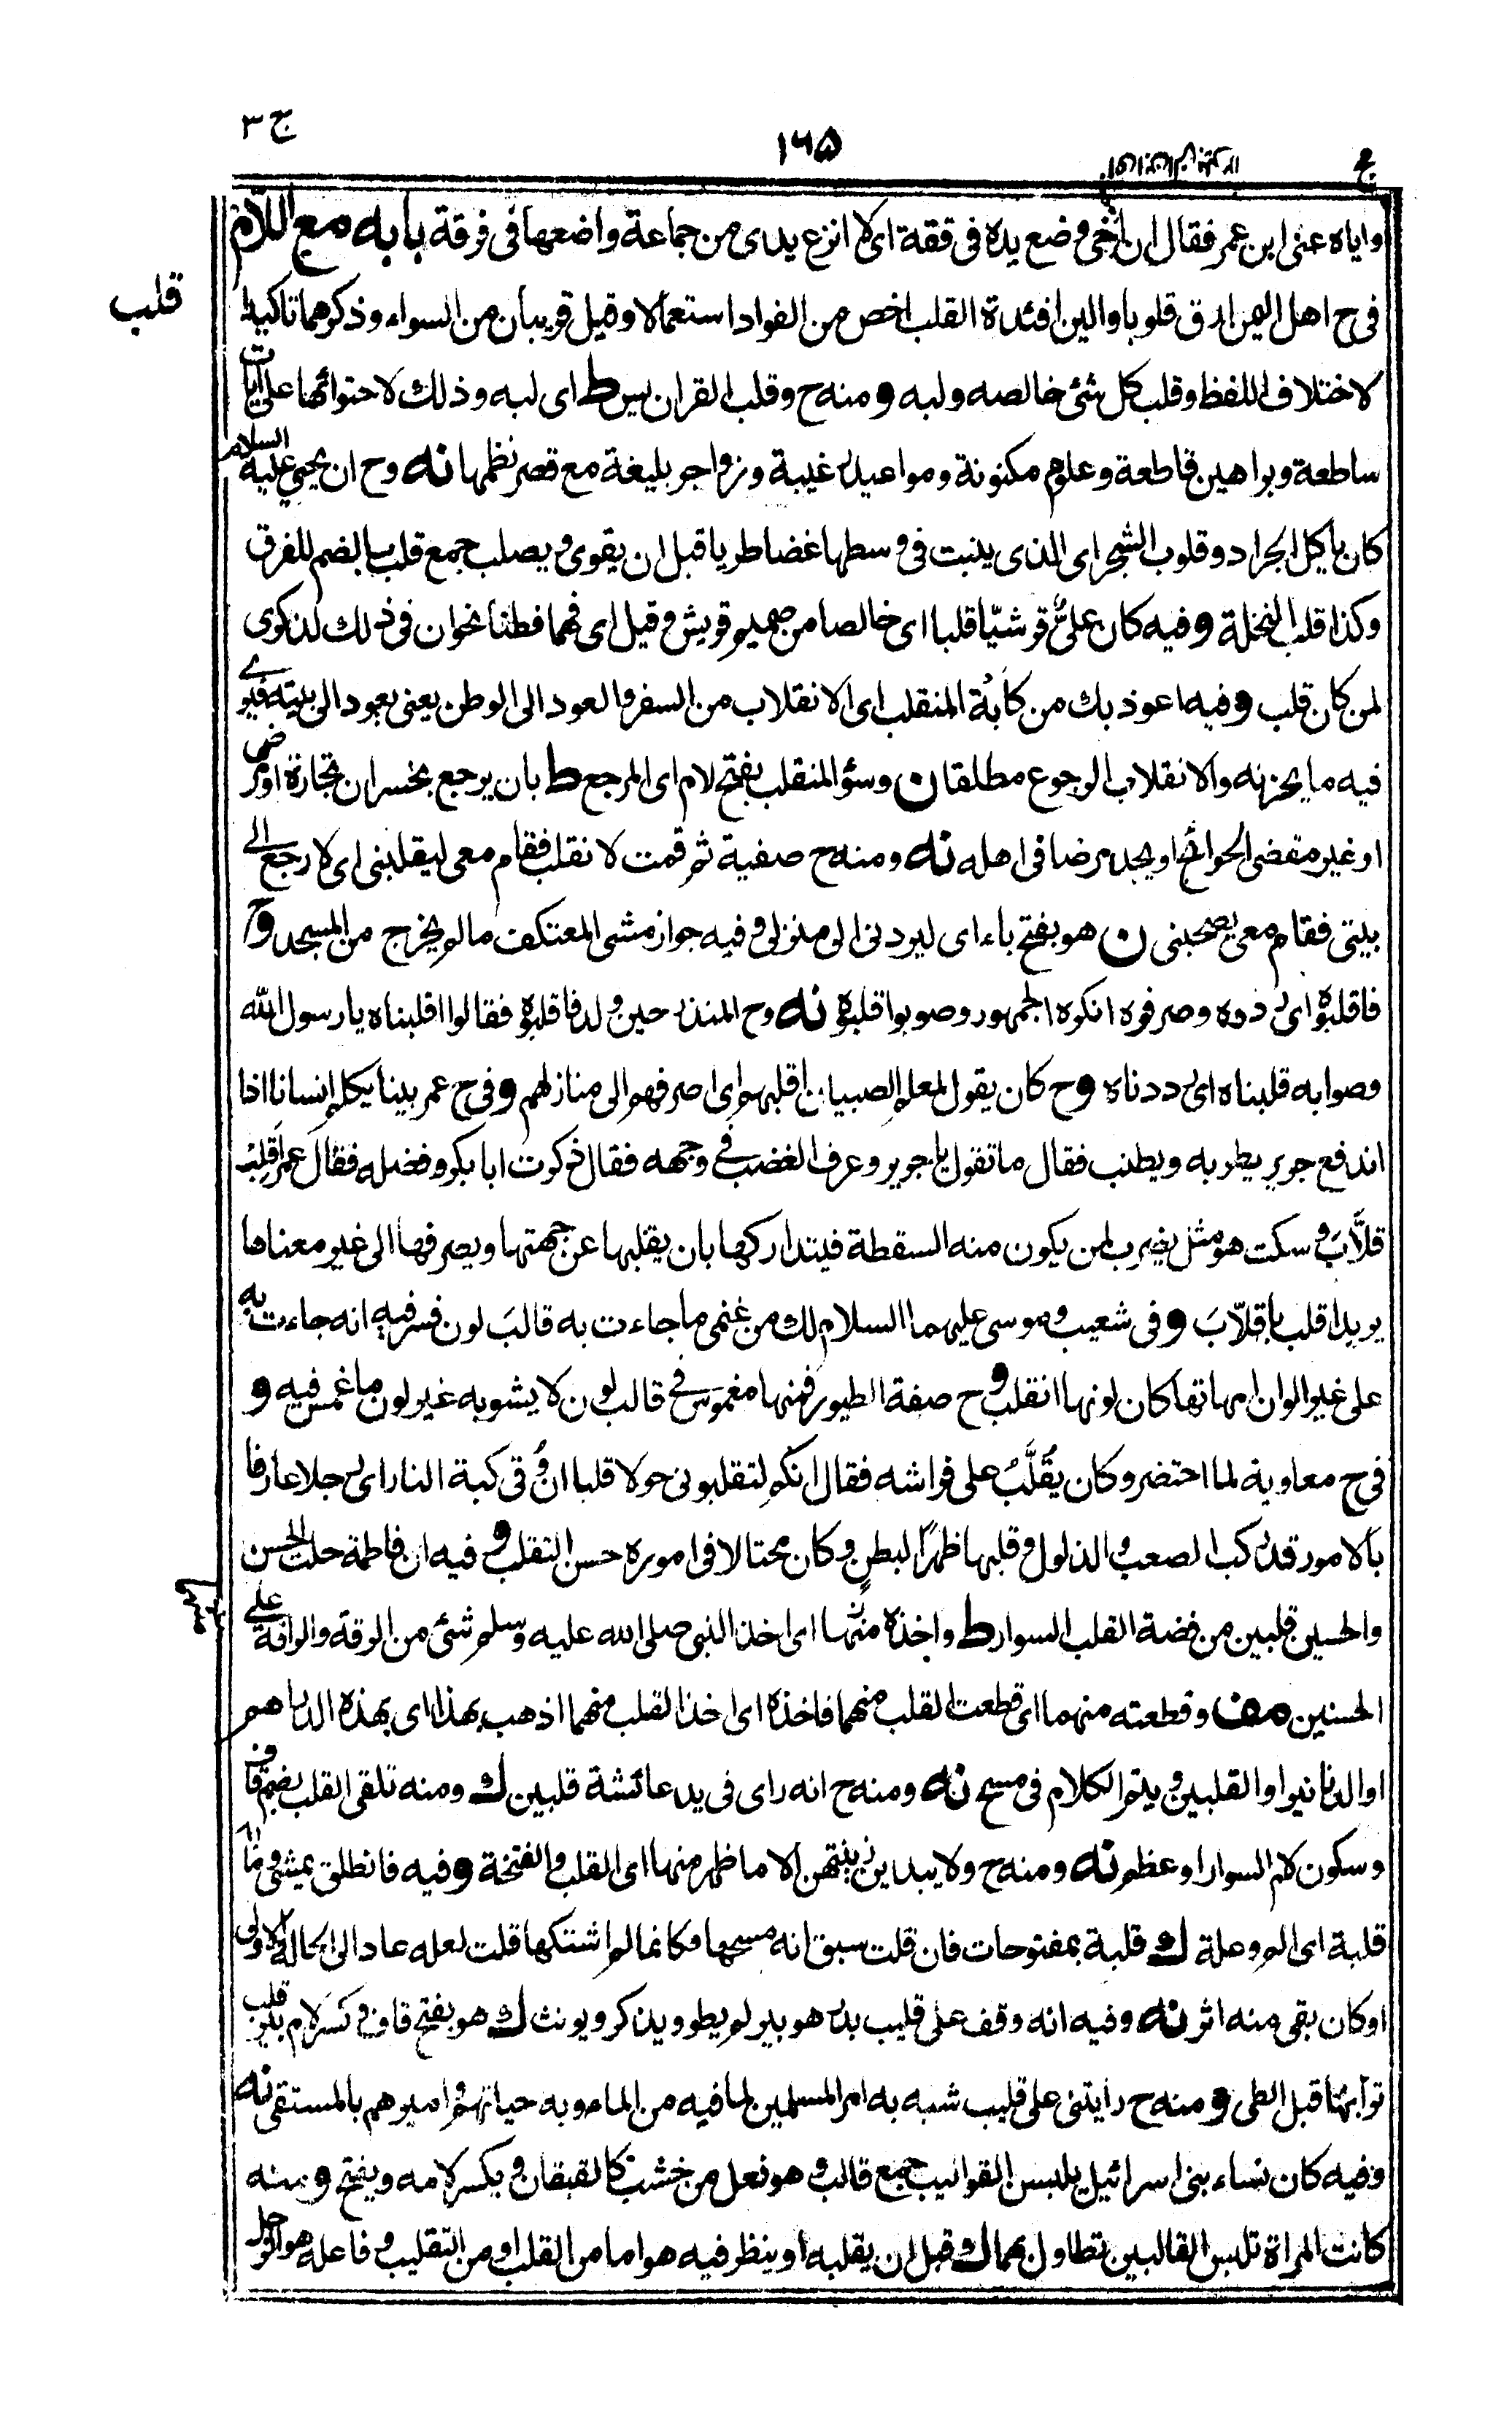 ج ٣
١٦٥
قلب
واياه عنى ابن عمر فقال ان اخى وضع يده فى ققة اى لا انزع يدى من جماعة واضعها فى فرقة بابه مع اللام
فى ح اهل اليمن ارق قلوبا والين افئدة القلب اخص من الفواد استعمالا وقيل قريبان من السواء وذكرهما تاكيدا
لاختلاف اللفظ وقلب كل شئ خالصه ولبه و منه ح وقلب القران يس ط اى لبه وذلك لاحتوائها على ايات
ساطعة وبراهين قاطعة وعلوم مكنونة ومواعيد رغيبة وزواجر بليغة مع قصر نظمها نه وح ان يحيى عليه السلام
كان ياكل الجراد وقلوب الشجر اى الذى ينبت فى وسطها غضا طريا قبل ان يقوى ويصلب جمع قلب بالضم للفرق
وكذا قلب النخلة و فيه كان علىٌّ قرشيّا قلبا اى خالصا من صميم قريش وقيل اى فهما فطنا نحو ان فى ذلك لذكرى
لمن كان قلب و فيه اعوذ بك من كآبة المنقلب اى الانقلاب من السفر والعود الى الوطن يعنى يعود الى بيته فيرى
فيه ما يحزنه والانقلاب الرجوع مطلقا ن وسؤ المنقلب بفتح لام اى المرجع ط بان يرجع بخسران تجارة او مرض
او غير مقضى الحوائج او يجد مرضا فى اهله نه ومنه ح صفية ثم قمت لانقلب فقام معى ليقلبنى اى لارجع الى
بيتى فقام معى يصحبنى ن هو بفتح ياء اى ليردنى الى منزلى وفيه جواز مشى المعتكف ما لم يخرج من المسجد وح
فاقلبوه اى ردوه وصرفوه انكره الجمهور وصوبوا قلبوه نه وح المنذر حين ولد فاقلبوه فقالوا اقلبناه يا رسول الله
وصوابه قلبناه اى رددناه وح كان يقول لمعلم الصبيان اقلبهم اى اصرفهم الى منازلهم و فى ح عمر بينا يكلم انسانا اذا
اندفع جرير يطريه ويطنب فقال ما تقول يا جرير وعرف الغضب فى وجهه فقال ذكرت ابا بكر وفضله فقال عمر اَقلِبْ
قلاَّبَ وسكت هو مثل يضرب لمن يكون منه السقطة فيتداركها بان يقلبها عن جهتها ويصرفها الى غير معناها
يريد اقلب يا قلاّبَ و فى شعيب وموسى عليهما السلام لك من غنمى ما جاءت به قالبَ لون فسر فيه انه جاءت به
على غير الوان امهاتها كان لونها انقلب وح صفة الطيور فمنها مغموس فى قالب لون لا يشوبه غير لون ما غمس فيه و
فى ح معاوية لما احتضر وكان يُقَلَّبُ على فراشه فقال انكم لتقلبونى حولا قلبا ان وُقى كبة النار اى رجلا عارفا
بالامور قد ركب الصعب والذلول وقلبها ظهرًا لبطنٍ وكان محتالا فى اموره حسن التقلب و فيه ان فاطمة حلت الحسن
والحسين قلبين من فضة القلب السوار ط واخذه منهما اى اخذ النبى صلى الله عليه وسلم شئ من الرقة والرافة على
الحسنين مف وقطعته منهما اى قطعت القلب منهما فاخذه اى اخذ القلب منهما اذهب بهذا اى بهذه الدراهم
او الدنانير او القلبين ويتم الكلام فى مسح نه ومنه ح انه راى فى يد عائشة قلبين ك ومنه تلقى القلب بضم قاف
وسكون لام السوار او عظم نه ومنه ح ولا يبدين زينتهن الا ما ظهر منها اى القلب والفتخة و فيه فانطلق يمشى وما به
قلبة اى الم وعلة ك قلبة بمفتوحات فان قلت سبق انه مسحها فكانما لم اشتكها قلت لعله عاد الى الحالة الاولى
او كان بقى منه اثر نه وفيه انه وقف على قليب بدر هو بير لم يطو ويذكر ويونث ك هو بفتح قاف وكسر لام بير قلب
ترابها قبل الطى و منه ح رايتنى على قليب شبه به امر المسلمين لما فيه من الماء وبه حياتهم واميرهم بالمستقى نه
وفيه كان نساء بنى اسرائيل يلبس القواليب جمع قالب وهو نعل من خشب كالقبقاب ويكسر لامه ويفتح و منه
كانت المراة تلبس القالبين تطاول بهما ك قبل ان يقلبه او ينظر فيه هو اما من القلب او من التقليب وفاعله هو الرجل